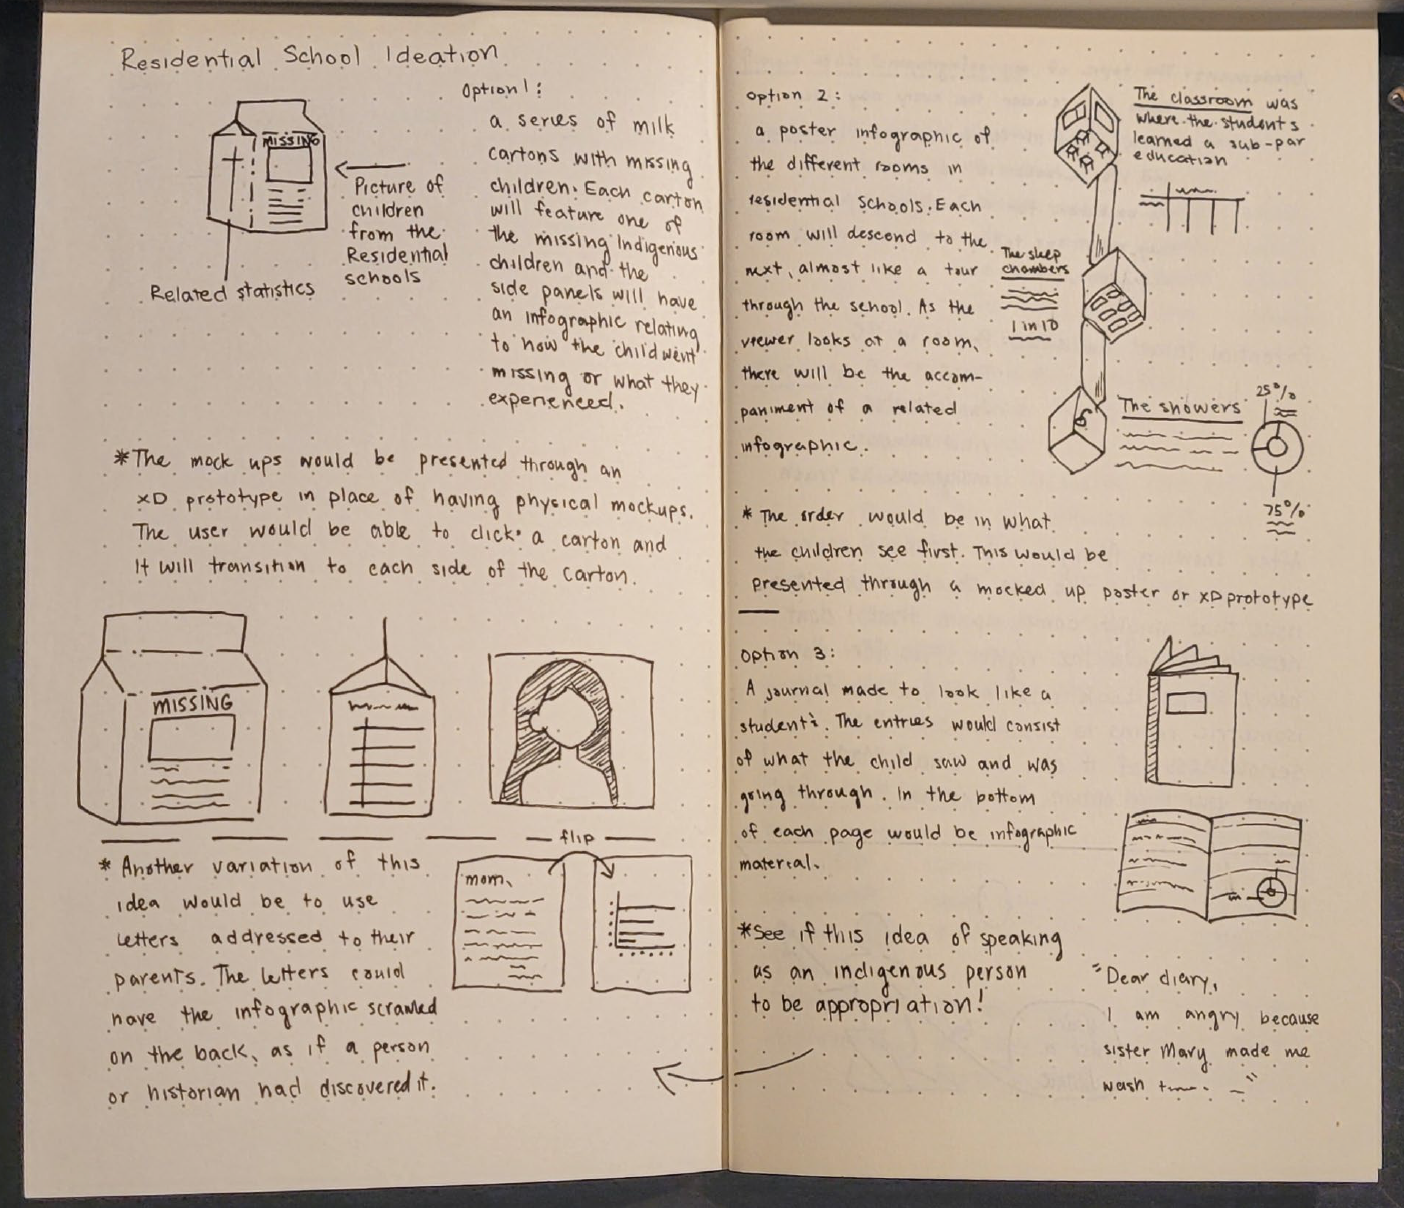 Residential School Ideation
MISSING
Picture of
children
from the
Residential
schools
Related statistics
Option 1:
a series of milk
cartons with missing
children. Each carton
will feature one of
the missing Indigenous
children and the
side panels will have
an infographic relating
to how the child went
missing or what they
experienced.
*The mock ups would be presented through an
XD prototype in place of having physical mockups.
The user would be able to click a carton and
it will transition to each side of the carton.
MISSING
flip
* Another variation of this
idea would be to use
letters addressed to their
parents. The letters could
have the infographic scrawled
on the back, as if a person
or historian had discovered it.
mom,
Option 2:
a poster infographic of
the different rooms in
residential schools. Each
room will descend to the
next, almost like a tour
through the school. As the
viewer looks at a room,
there will be the accom-
paniment of a related
infographic.
The classroom was
where the students
learned a sub-par
education
The sleep
chambers
1 in 10
The showers
25%
75%
* The order would be in what
the children see first. This would be
presented through a mocked up poster or XD prototype
Option 3:
A journal made to look like a
student's. The entries would consist
of what the child saw and was
going through. In the bottom
of each page would be infographic
material.
*See if this idea of speaking
as an indigenous person
to be appropriation!
"Dear diary,
I am angry because
sister Mary made me
wash